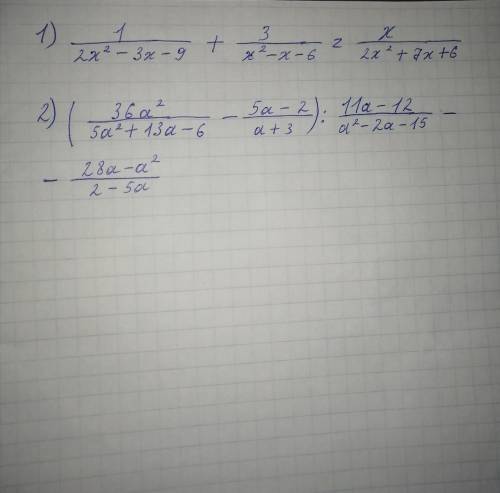 1) 1/(2x² - 3x - 9) + 3/(x² - x - 6) = x/(2x² + 7x + 6)
2) (36a²/(5a² + 13a - 6) - (5a - 2)/(a + 3)) : (11a - 12)/(a² - 2a - 15) -
- (28a - a²)/(2 - 5a)